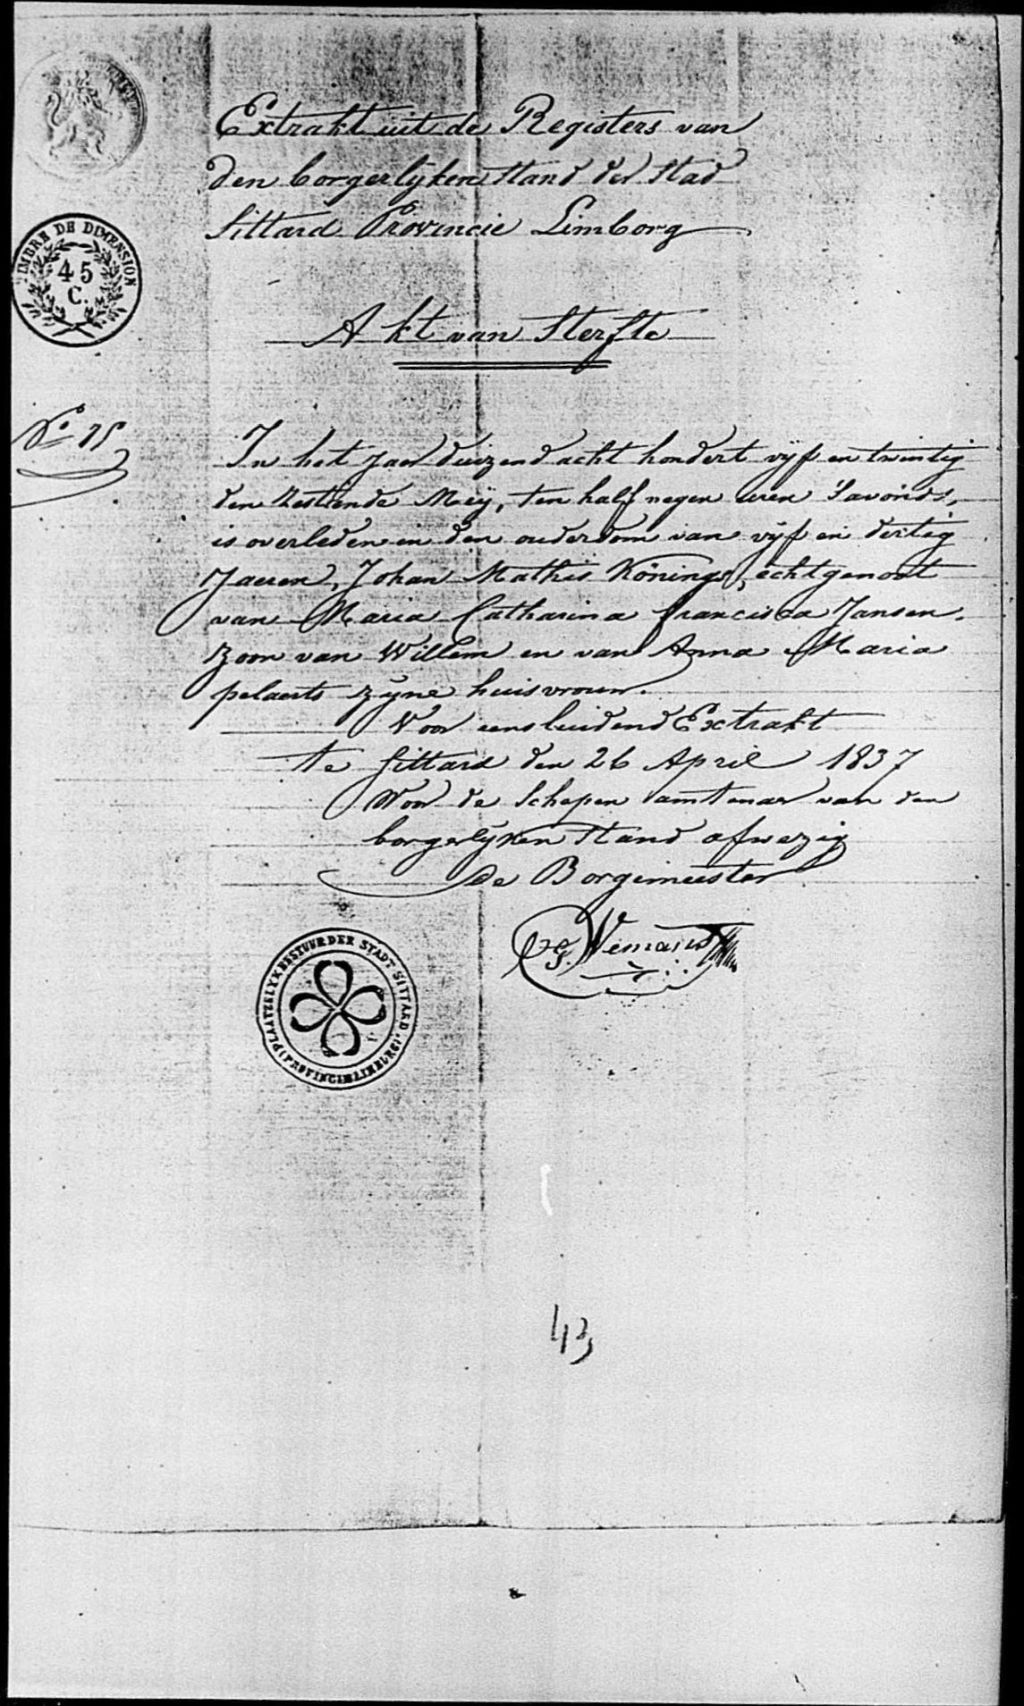 Extrakt uit de Registers van
den borgerlijken stand der stad
Sittard Provincie Limborg
TIMBRE DE DIMENSION
45
C.
Akt van Sterfte
No
In het Jaer duizend acht hondert vijf en twintig
den zestiende Meij, ten half negen uren 'savonds,
is overleden in den ouderdom van vijf en dertig
Jaeren, Johan Mathis Könings, echtgenoot
van Maria Catharina francisca Jansen.
zoon van Willem en van Anna Maria
pelaerts zijne huisvrouw.
Voor eensluidend Extrakt
te Sittard den 26 April 1837
Voor de Schepen amtenaar van den
borgerlijken Stand afwezig
De Borgemeester
PLAATZELYK BESTUUR DER STADT SITTARD. (PROVINCIE LIMBURG)
43